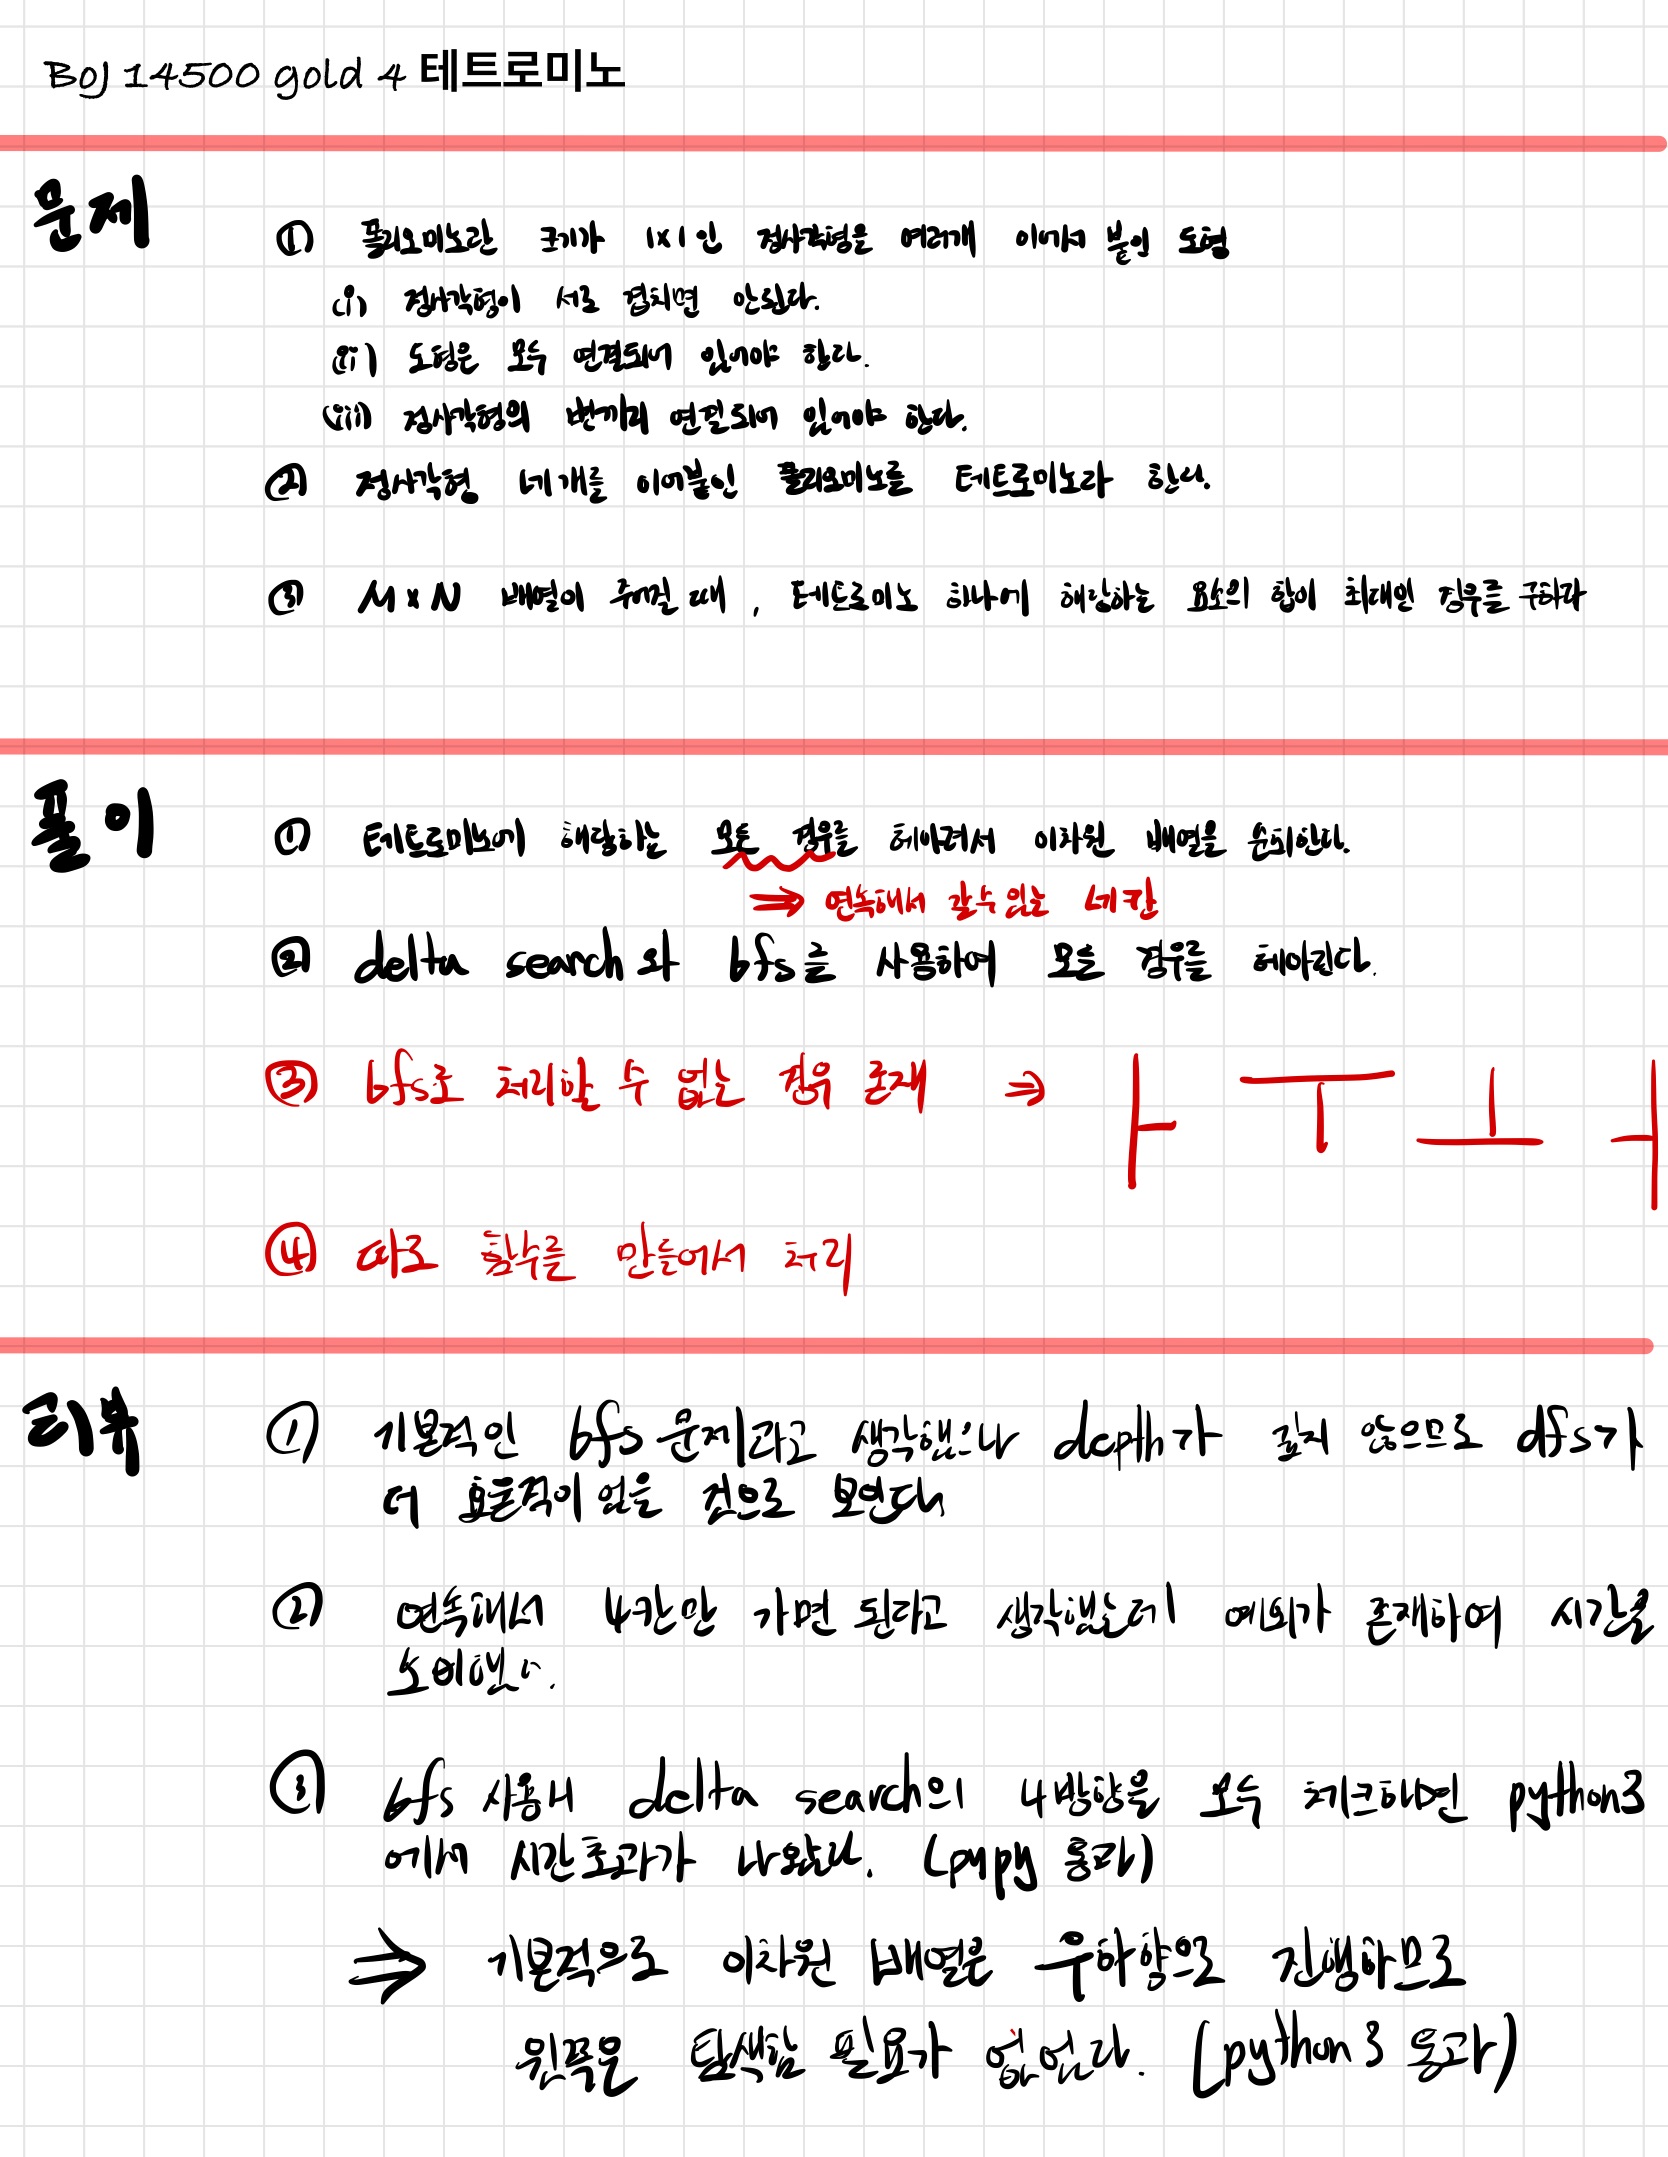 BOJ 14500 gold 4 테트로미노
문제
① 폴리오미노란 크기가 1x1인 정사각형을 여러개 이어서 붙인 도형
(i) 정사각형이 서로 겹치면 안된다.
(ii) 도형은 모두 연결되어 있어야 한다.
(iii) 정사각형의 변끼리 연결되어 있어야 한다.
② 정사각형 네개를 이어붙인 폴리오미노를 테트로미노라 한다.
③ M x N 배열이 주어질 때, 테트로미노 하나에 해당하는 요소의 합이 최대인 경우를 구하라
풀이
① 테트로미노에 해당하는 모든 경우를 헤아려서 이차원 배열을 순회한다.
⇒ 연속해서 갈수있는 네칸
② delta search와 bfs를 사용하여 모든 경우를 헤아린다.
③ bfs로 처리할 수 없는 경우 존재 ⇒ ㅏ ㅜ ㅗ ㅓ
④ 따로 함수를 만들어서 처리
리뷰
① 기본적인 bfs 문제라고 생각했으나 depth가 깊지 않으므로 dfs가
더 효율적이었을 것으로 보인다
② 연속해서 4칸만 가면 된다고 생각했는데 예외가 존재하여 시간을
소비했다.
③ bfs 사용시 delta search의 4방향을 모두 체크하면 python3
에서 시간초과가 나왔다. (pypy 통과)
⇒ 기본적으로 이차원 배열은 우하향으로 진행하므로
왼쪽은 탐색할 필요가 없었다. (python3 통과)